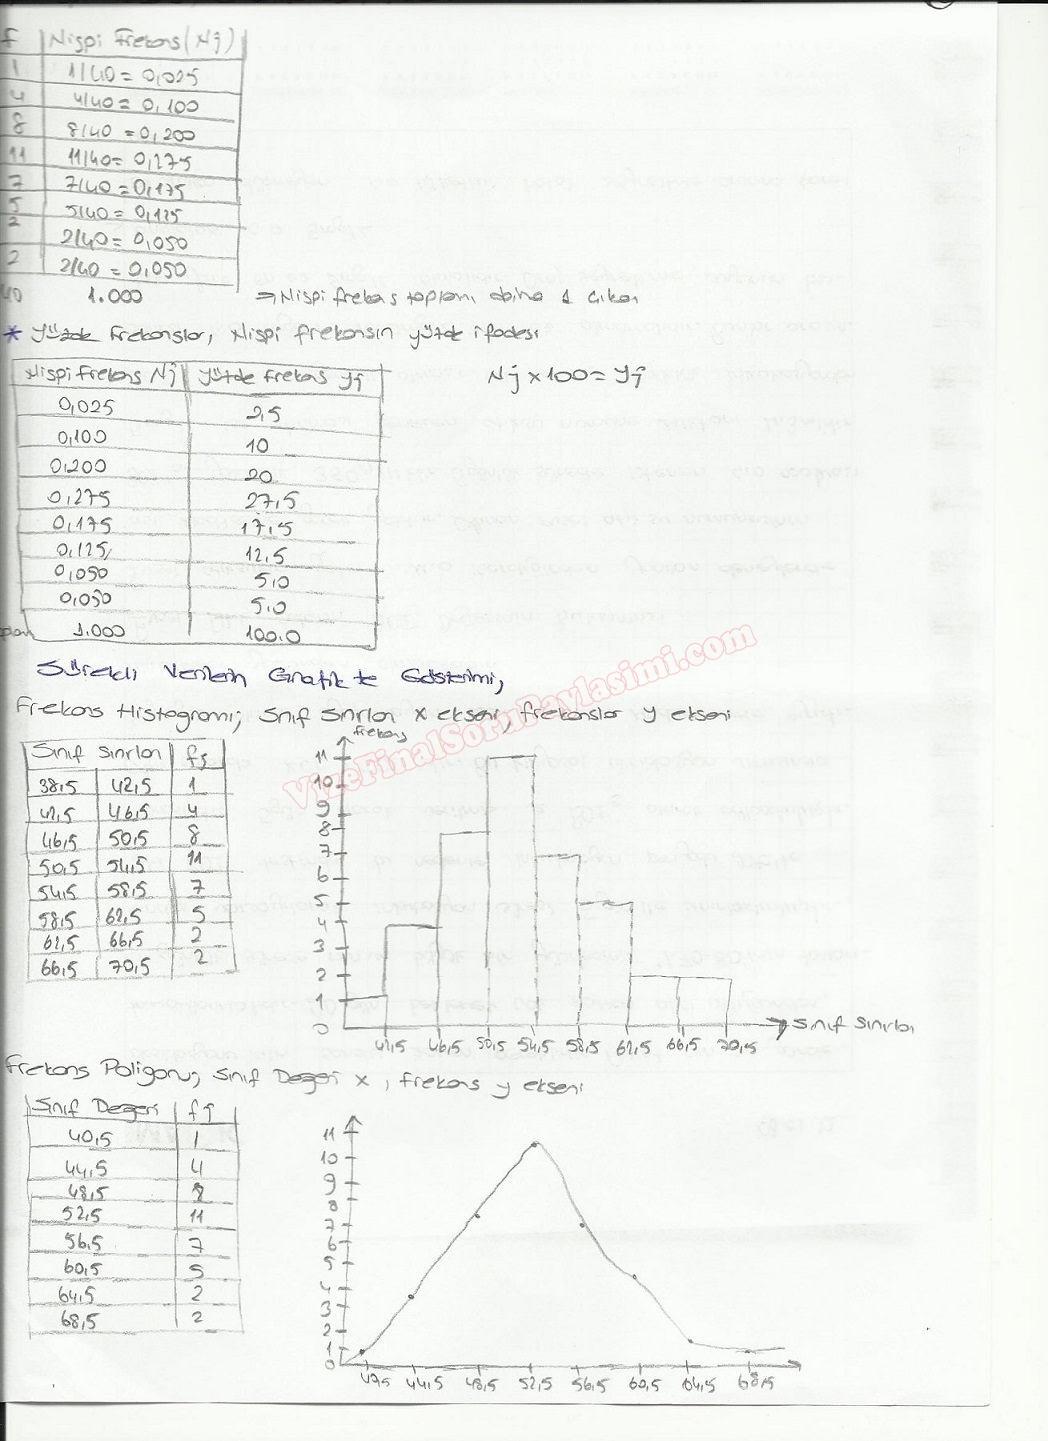 f Nispi Frekans (Nj)
1 1/40 = 0,025
4 4/40 = 0,100
8 8/40 = 0,200
11 11/40 = 0,275
7 7/40 = 0,175
5 5/40 = 0,125
2 2/40 = 0,050
2 2/40 = 0,050
40 1.000 ⇒ Nispi frekans toplamı daima 1 çıkar
* Yüzde Frekanslar, Nispi frekansın yüzde ifadesi
Nispi Frekans Nj Yüzde Frekans Yj Nj x 100 = Yj
0,025 2,5
0,100 10
0,200 20
0,275 27,5
0,175 17,5
0,125 12,5
0,050 5,0
0,050 5,0
1.000 100.0
Sürekli Verilerin Grafikte Gösterimi,
Frekans Histogramı; Sınıf Sınırları x ekseni, frekanslar y ekseni
VizeFinalSoruPaylasimi.com
Sınıf Sınırları fj
38,5 42,5 1
42,5 46,5 4
46,5 50,5 8
50,5 54,5 11
54,5 58,5 7
58,5 62,5 5
62,5 66,5 2
66,5 70,5 2
frekans
11
10
9
8
7
6
5
4
3
2
1
0
42,5 46,5 50,5 54,5 58,5 62,5 66,5 70,5
Sınıf Sınırları
Frekans Poligonu; Sınıf Değeri x, frekans y ekseni
Sınıf Değeri fj
40,5 1
44,5 4
48,5 8
52,5 11
56,5 7
60,5 5
64,5 2
68,5 2
11
10
9
8
7
6
5
4
3
2
1
0
44,5 48,5 52,5 56,5 60,5 64,5 68,5